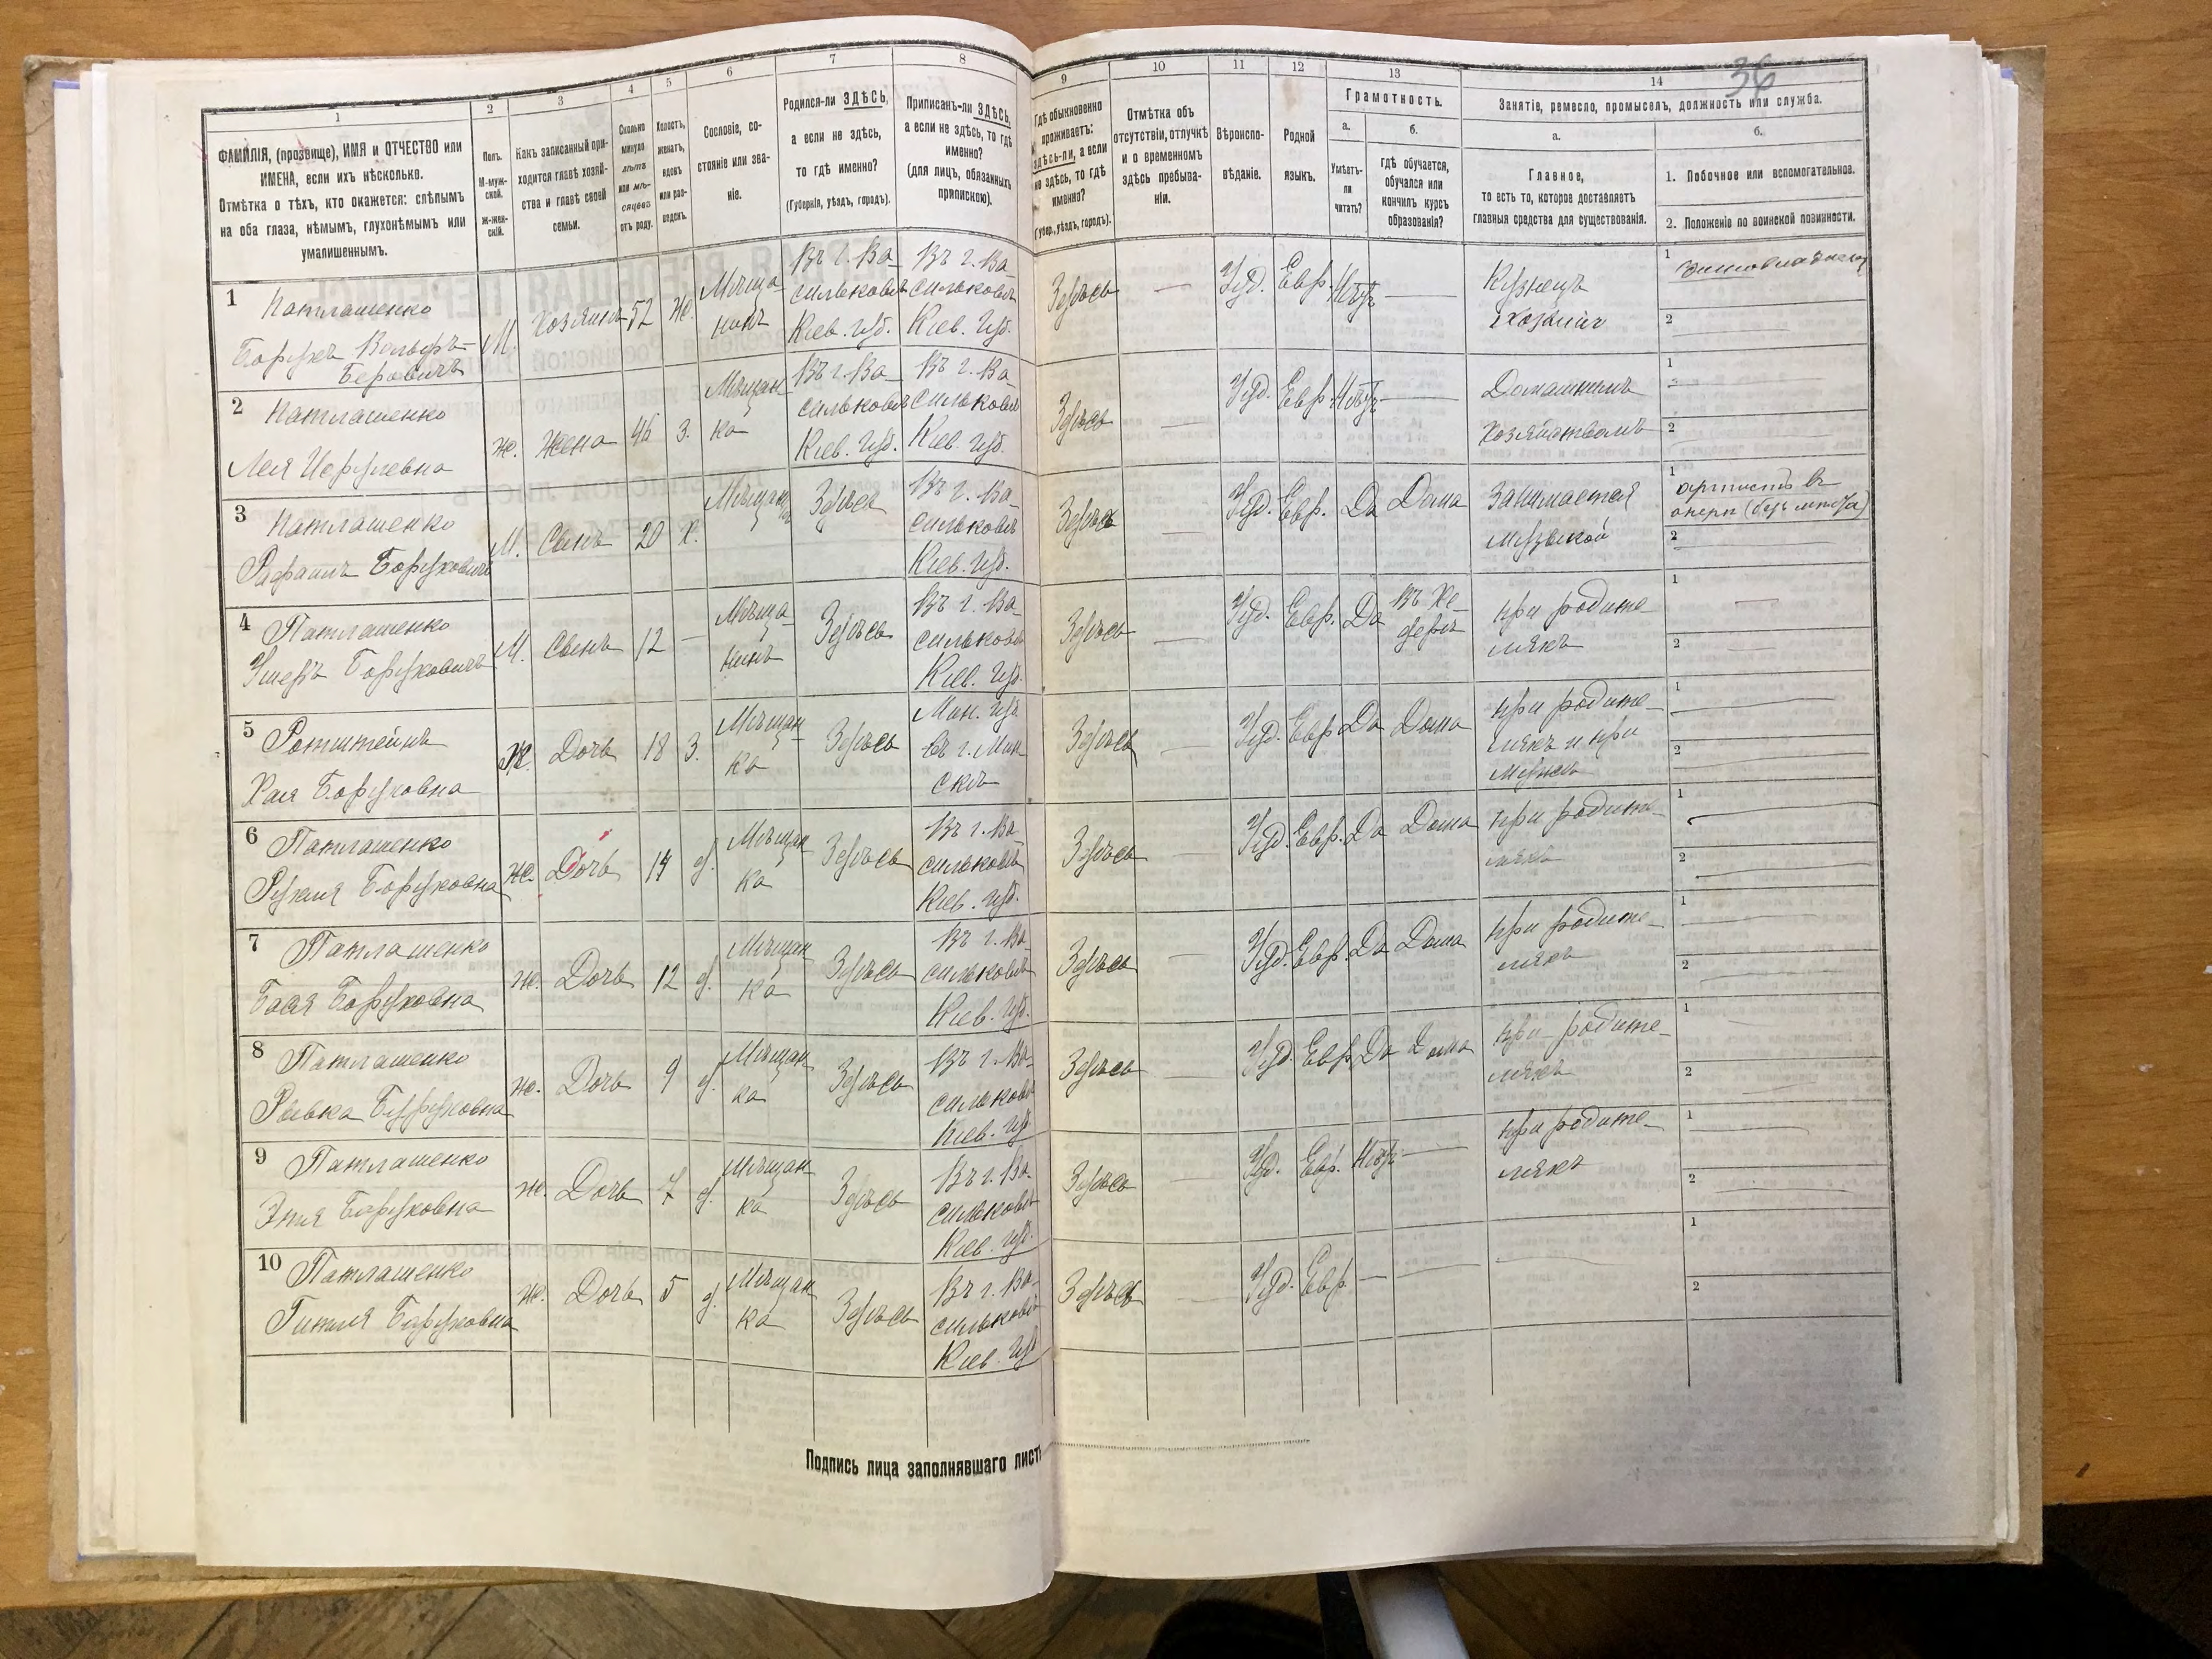 36
1
2
3
4
5
6
7
8
9
10
11
12
13
14
ФАМИЛІЯ, (прозвище), ИМЯ и ОТЧЕСТВО или
ИМЕНА, если ихъ нѣсколько.
Отмѣтка о тѣхъ, кто окажется: слѣпымъ
на оба глаза, нѣмымъ, глухонѣмымъ или
умалишеннымъ.
Полъ.
М-муж-
ской.
Ж-жен-
скій.
Какъ записанный при-
ходится главѣ хозяй-
ства и главѣ своей
семьи.
Сколько
минуло
лѣтъ
или мѣ-
сяцевъ
отъ роду.
Холостъ,
женатъ,
вдовъ
или раз-
веденъ.
Сословіе, со-
стояніе или зва-
ніе.
Родился-ли ЗДѢСЬ,
а если не здѣсь,
то гдѣ именно?
(Губернія, уѣздъ, городъ).
Приписанъ-ли ЗДѢСЬ,
а если не здѣсь, то гдѣ
именно?
(для лицъ, обязанныхъ
припискою).
Гдѣ обыкновенно
проживаетъ:
здѣсь-ли, а если
не здѣсь, то гдѣ
именно?
(Губер., уѣздъ, городъ).
Отмѣтка объ
отсутствіи, отлучкѣ
и о временномъ
здѣсь пребыва-
ніи.
Вѣроиспо-
вѣданіе.
Родной
языкъ.
Грамотность.
а.
Умѣетъ-
ли
читать?
б.
гдѣ обучается,
обучался или
кончилъ курсъ
образованія?
Занятіе, ремесло, промыселъ, должность или служба.
а.
Главное,
то есть то, которое доставляетъ
главныя средства для существованія.
б.
1. Побочное или вспомогательное.
2. Положеніе по воинской повинности.
1 Патлашенко
Борухъ Вольфъ-
Беровичъ
М. Хозяинъ 52 Ж. Мѣща-
нинъ
Въ г. Ва-
сильковѣ
Кіев. губ.
Въ г. Ва-
сильковѣ
Кіев. губ.
Здѣсь — Іуд. Евр. Нѣтъ —
Кузнецъ
Хозяинъ
1
2
2 Патлашенко
Лея
Ж. Жена 46 З. Мѣщан-
ка
Въ г. Ва-
сильковѣ
Кіев. губ.
Въ г. Ва-
сильковѣ
Кіев. губ.
Здѣсь — Іуд. Евр. Нѣтъ —
Домашнимъ
хозяйствомъ
1
2
3 Патлашенко
Рафаилъ Боруховичъ
М. Сынъ 20 Х. Мѣщанинъ
Здѣсь
Въ г. Ва-
сильковѣ
Кіев. губ.
Здѣсь Іуд. Евр. Да Дома
Занимается
музыкой
1 артистъ въ
оперѣ
2
4 Патлашенко
Ушеръ Боруховичъ
М. Сынъ 12 — Мѣща-
нинъ
Здѣсь
Въ г. Ва-
сильковѣ
Кіев. губ.
Здѣсь — Іуд. Евр. Да Въ Хе-
дерѣ
при родите-
ляхъ
1 —
2 —
5 Ротштейнъ
Хая Боруховна
Ж. Дочь 18 З. Мѣщан-
ка
Здѣсь
Мин. губ.
въ г. Мин-
скѣ
Здѣсь — Іуд. Евр. Да Дома
при родите-
ляхъ и при
мужѣ
1
2
6 Патлашенко
Рухля Боруховна
Ж. Дочь 14 д. Мѣщан-
ка
Здѣсь
Въ г. Ва-
сильковѣ
Кіев. губ.
Здѣсь — Іуд. Евр. Да Дома
при родите-
ляхъ
1
2
7 Патлашенко
Бася Боруховна
Ж. Дочь 12 д. Мѣщан-
ка
Здѣсь
Въ г. Ва-
сильковѣ
Кіев. губ.
Здѣсь — Іуд. Евр. Да Дома
при родите-
ляхъ
1
2
8 Патлашенко
Рывка Боруховна
Ж. Дочь 9 д. Мѣщан-
ка
Здѣсь
Въ г. Ва-
сильковѣ
Кіев. губ.
Здѣсь — Іуд. Евр. Да Дома
при родите-
ляхъ
1
2
9 Патлашенко
Этля Боруховна
Ж. Дочь 7 д. Мѣщан-
ка
Здѣсь
Въ г. Ва-
сильковѣ
Кіев. губ.
Здѣсь — Іуд. Евр. Нѣтъ —
при родите-
ляхъ
1
2
10 Патлашенко
Гитля Боруховна
Ж. Дочь 5 д. Мѣщан-
ка
Здѣсь
Въ г. Ва-
сильковѣ
Кіев. губ.
Здѣсь — Іуд. Евр. — — —
1
2
Подпись лица заполнявшаго листъ